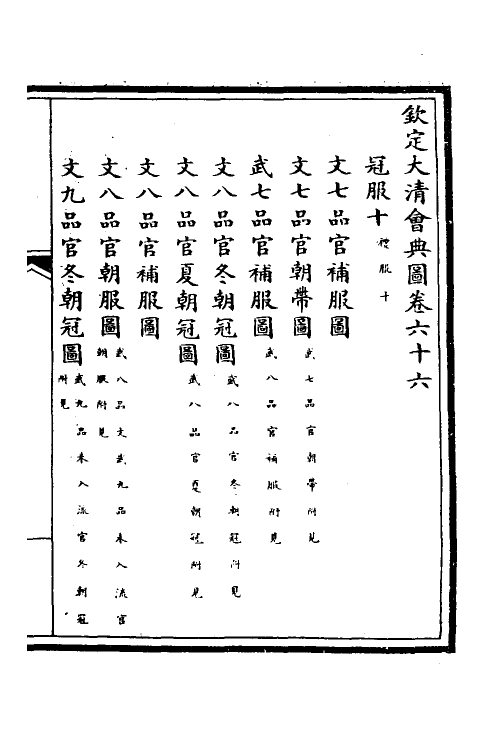 欽定大清會典圖卷六十六
冠服十 禮服十
文七品官補服圖
文七品官朝帶圖 武七品官朝帶附見
武七品官補服圖 武八品官補服附見
文八品官冬朝冠圖 武八品官冬朝冠附見
文八品官夏朝冠圖 武八品官夏朝冠附見
文八品官補服圖
文八品官朝服圖 武八品文武九品未入流官朝服附見
文九品官冬朝冠圖 武九品未入流官冬朝冠附見